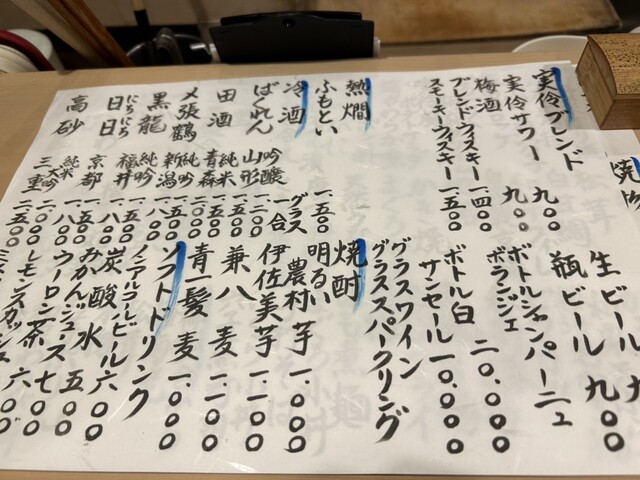 実伶ブレンド
実伶サワー 九〇〇
梅酒 九〇〇
ブレンドウィスキー 一.四〇〇
スモーキーウィスキー 一.五〇〇
熱燗
ふもとい 一.五〇〇
冷酒 グラス 一合
ばくれん 吟醸 山形
田酒 純米 青森
〆張鶴 純吟 新潟
黒龍 純吟 福井
日日 にちにち 京都
高砂 純米大吟 三重
生ビール 九
瓶ビール 九〇〇
ボトルシャンパーニュ
ボランジェ 二〇.〇〇〇
ボトル白
サンセール 一〇.〇〇〇
グラスワイン
グラススパークリング
焼酎
明るい農村 芋 一.〇〇〇
伊佐美 芋 一.一〇〇
兼八 麦 一.一〇〇
青一髪 麦 一.〇〇〇
ソフトドリンク
ノンアルコールビール 六〇〇
炭酸水 五〇〇
みかんジュース 七〇〇
ウーロン茶 六〇〇
レモンスカッシュ